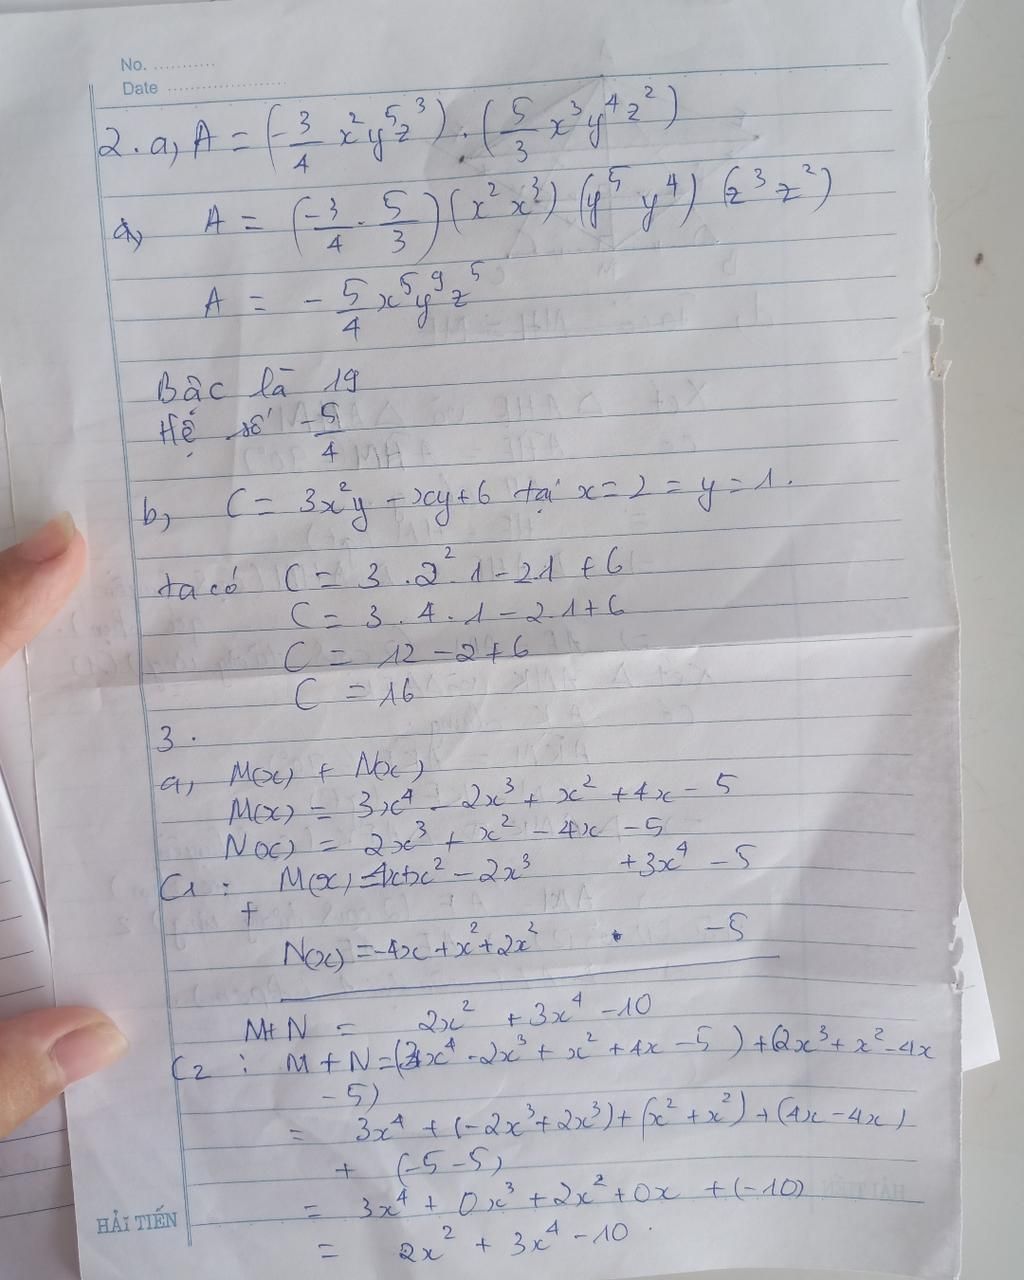 No. ...........
Date ......................
2. a, A = (-3/4 x²y⁵z³) . (5/3 x³y⁴z²)
a, A = (-3/4 . 5/3) (x² x³) (y⁵ y⁴) (z³ z²)
A = - 5/4 x⁵y⁹z⁵
Bậc là 19
Hệ số -5/4
b, C = 3x²y - xy + 6 tại x = 2 = y = 1.
ta có C = 3 . 2² . 1 - 2.1 + 6
C = 3 . 4 . 1 - 2.1 + 6
C = 12 - 2 + 6
C = 16
3.
a, M(x) + N(x)
M(x) = 3x⁴ - 2x³ + x² + 4x - 5
N(x) = 2x³ + x² - 4x - 5
C1 : M(x) = 4x + x² - 2x³ + 3x⁴ - 5
+
N(x) = -4x + x² + 2x² - 5
M + N = 2x² + 3x⁴ - 10
C2 : M + N = (3x⁴ - 2x³ + x² + 4x - 5) + (2x³ + x² - 4x
- 5)
= 3x⁴ + (-2x³ + 2x³) + (x² + x²) + (4x - 4x)
+ (-5 - 5)
= 3x⁴ + 0x³ + 2x² + 0x + (-10)
= 2x² + 3x⁴ - 10.
HẢI TIẾN